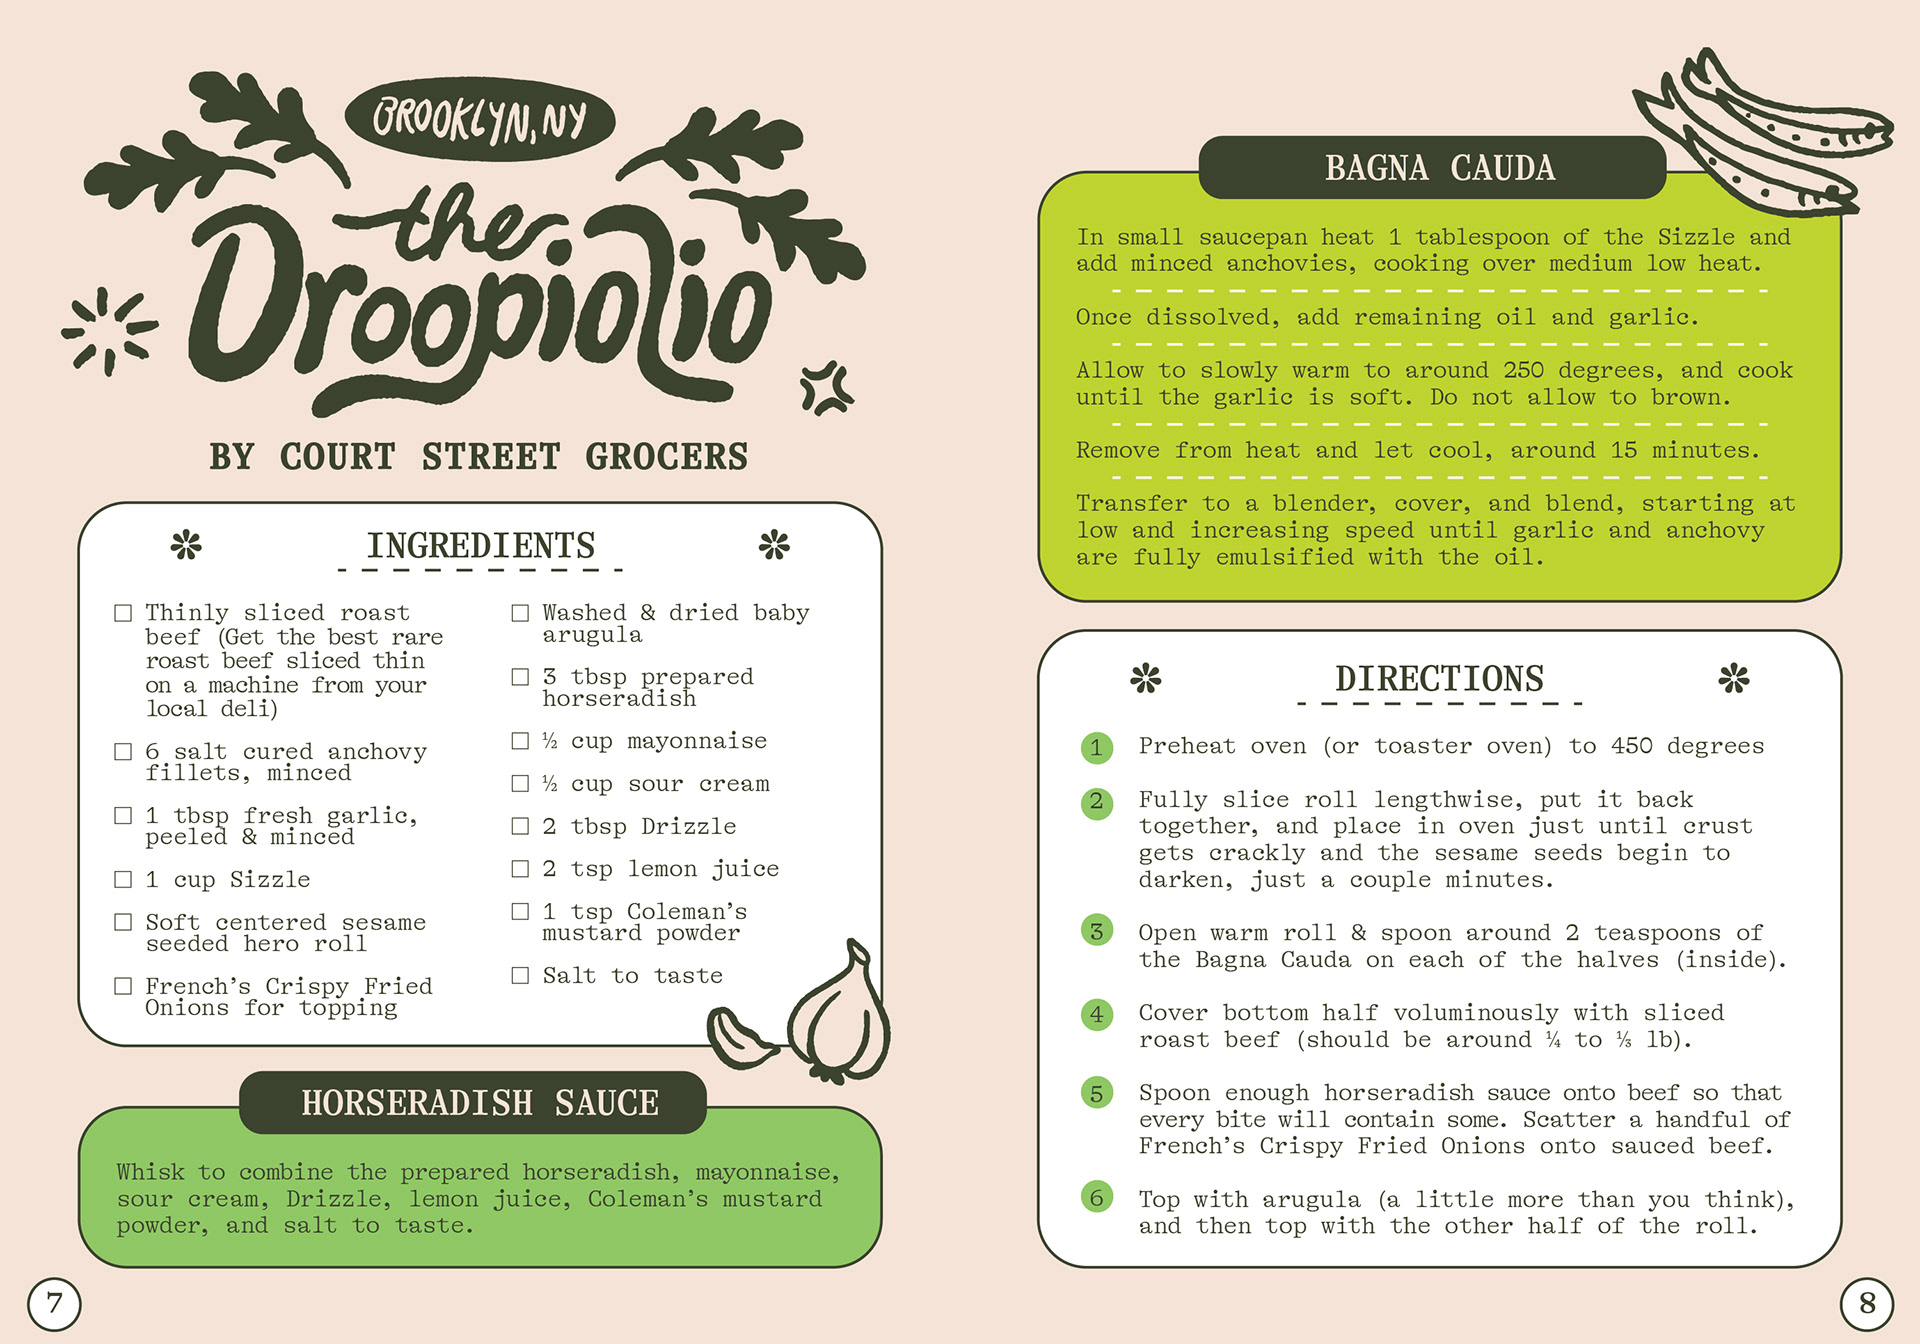 BROOKLYN, NY
the
Droopiolio
BY COURT STREET GROCERS
INGREDIENTS
Thinly sliced roast
beef (Get the best rare
roast beef sliced thin
on a machine from your
local deli)
6 salt cured anchovy
fillets, minced
1 tbsp fresh garlic,
peeled & minced
1 cup Sizzle
Soft centered sesame
seeded hero roll
French's Crispy Fried
Onions for topping
Washed & dried baby
arugula
3 tbsp prepared
horseradish
½ cup mayonnaise
½ cup sour cream
2 tbsp Drizzle
2 tsp lemon juice
1 tsp Coleman's
mustard powder
Salt to taste
HORSERADISH SAUCE
Whisk to combine the prepared horseradish, mayonnaise,
sour cream, Drizzle, lemon juice, Coleman's mustard
powder, and salt to taste.
7
BAGNA CAUDA
In small saucepan heat 1 tablespoon of the Sizzle and
add minced anchovies, cooking over medium low heat.
Once dissolved, add remaining oil and garlic.
Allow to slowly warm to around 250 degrees, and cook
until the garlic is soft. Do not allow to brown.
Remove from heat and let cool, around 15 minutes.
Transfer to a blender, cover, and blend, starting at
low and increasing speed until garlic and anchovy
are fully emulsified with the oil.
DIRECTIONS
1 Preheat oven (or toaster oven) to 450 degrees
2 Fully slice roll lengthwise, put it back
together, and place in oven just until crust
gets crackly and the sesame seeds begin to
darken, just a couple minutes.
3 Open warm roll & spoon around 2 teaspoons of
the Bagna Cauda on each of the halves (inside).
4 Cover bottom half voluminously with sliced
roast beef (should be around ¼ to ⅓ lb).
5 Spoon enough horseradish sauce onto beef so that
every bite will contain some. Scatter a handful of
French's Crispy Fried Onions onto sauced beef.
6 Top with arugula (a little more than you think),
and then top with the other half of the roll.
8